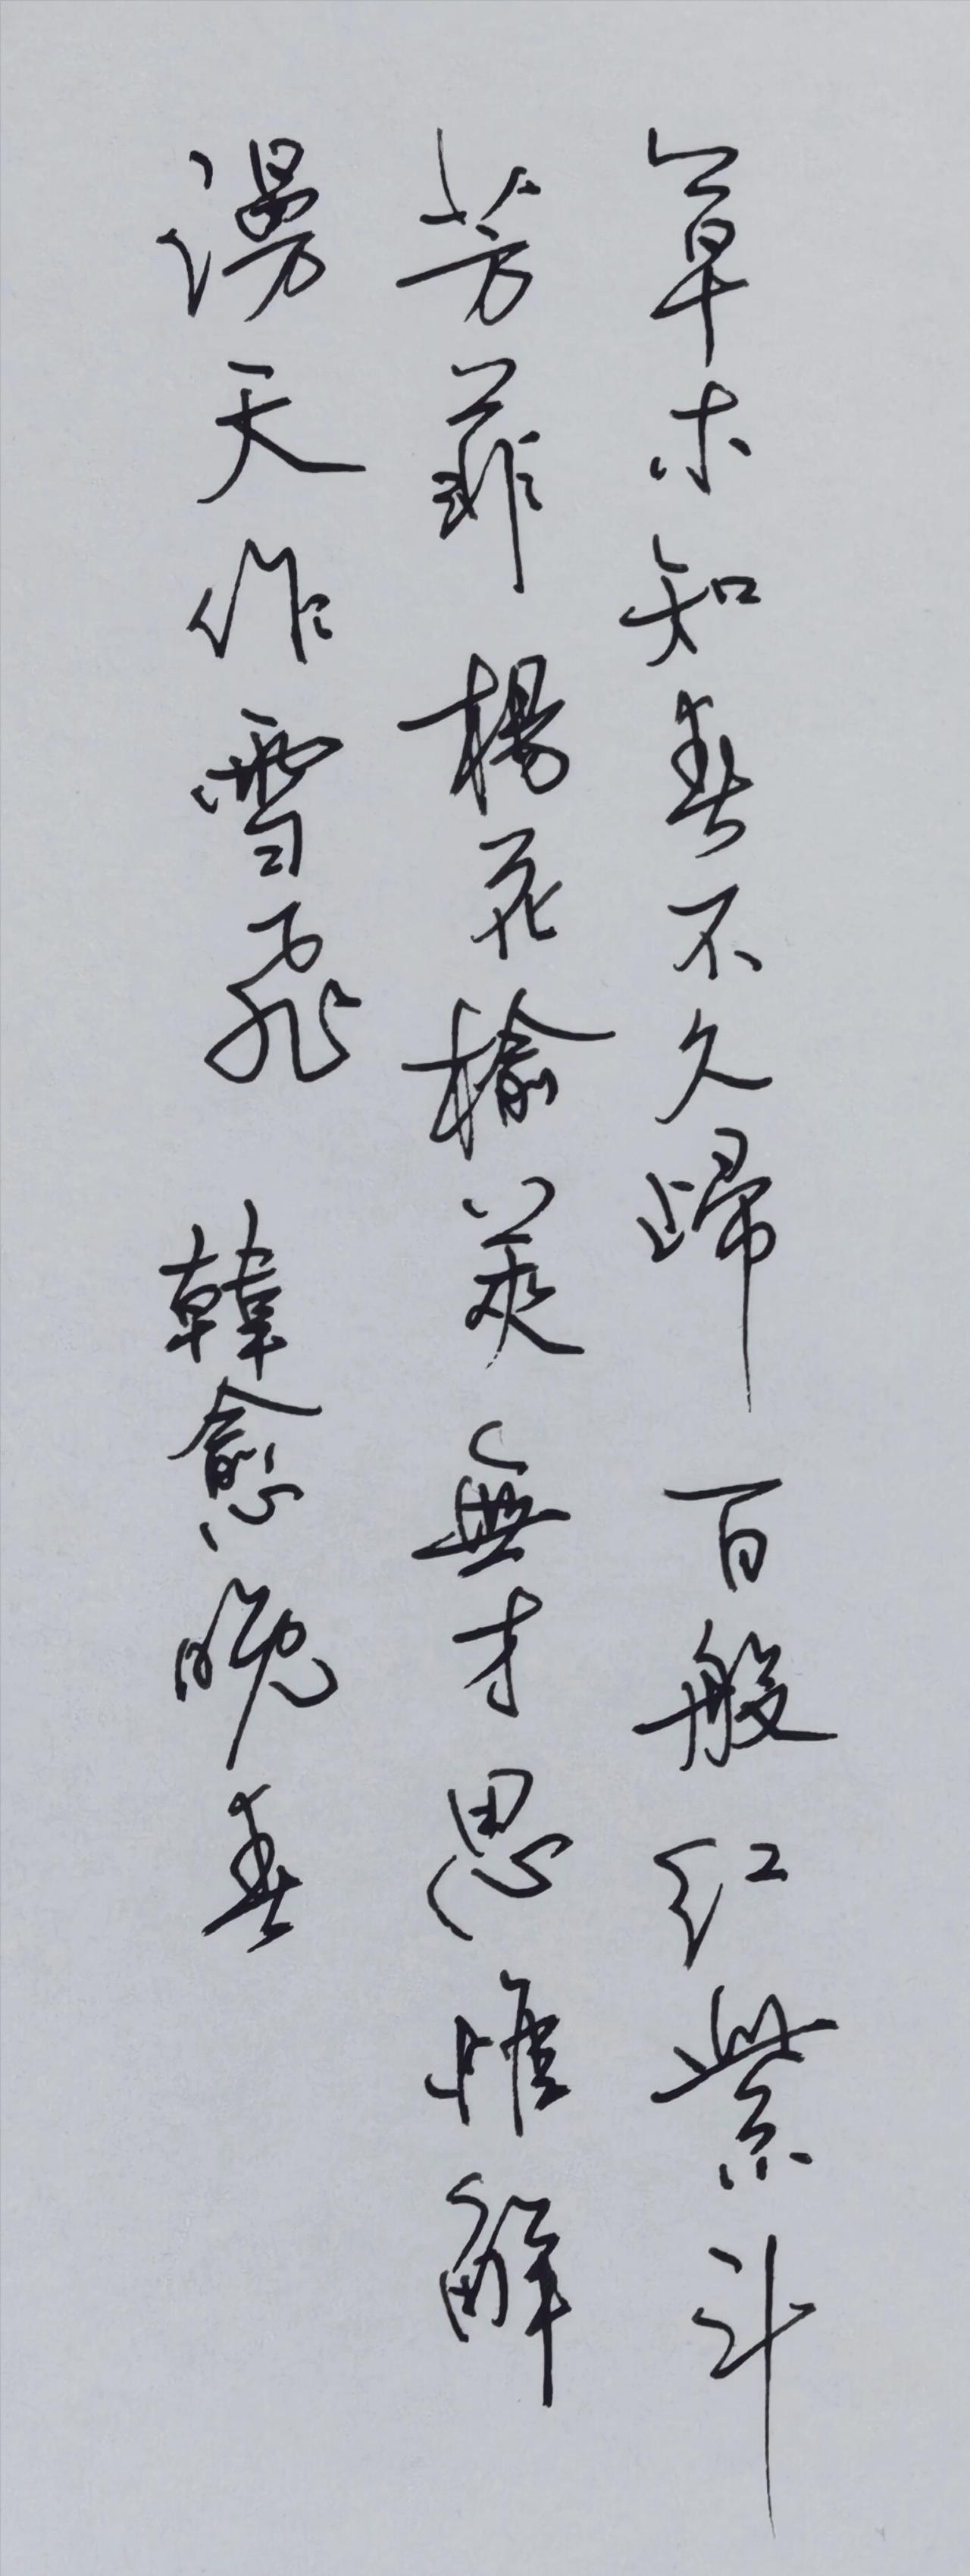 草木知春不久歸百般红紫斗
芳菲楊花榆莢無才思惟解
漫天作雪飛韓愈晚春